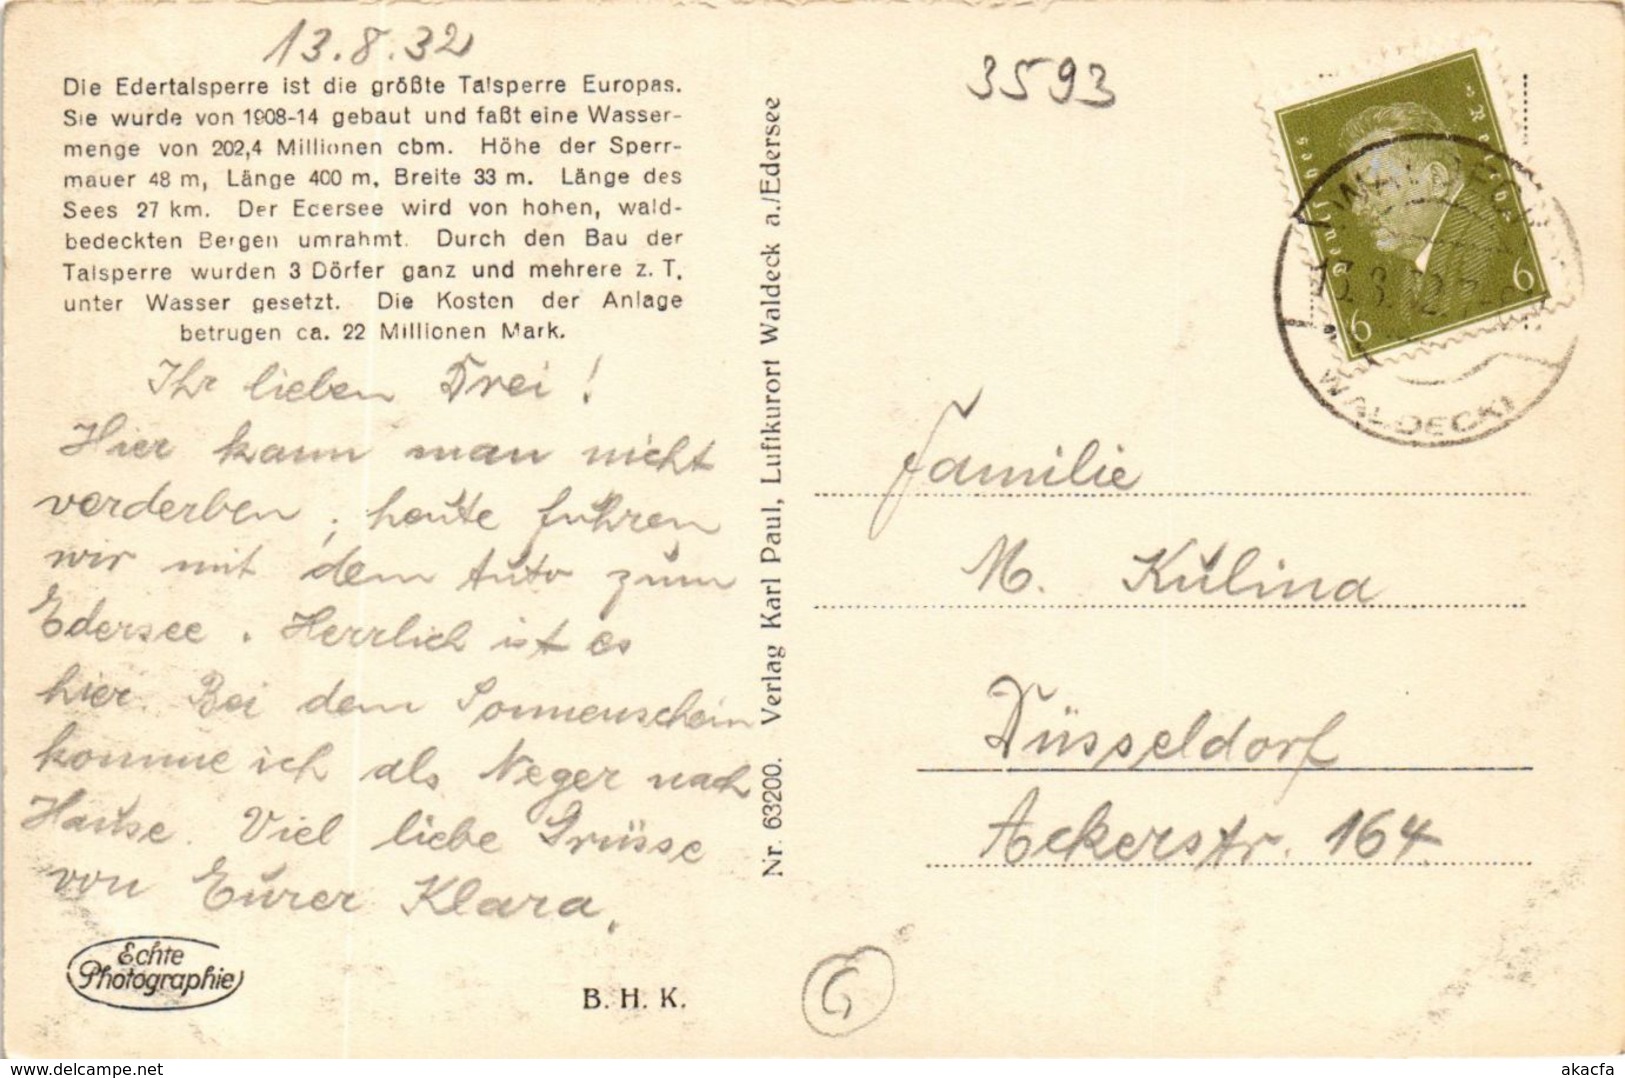 13.8.32
Die Edertalsperre ist die größte Talsperre Europas.
Sie wurde von 1908-14 gebaut und faßt eine Wasser-
menge von 202,4 Millionen cbm. Höhe der Sperr-
mauer 48 m, Länge 400 m, Breite 33 m. Länge des
Sees 27 km. Der Edersee wird von hohen, wald-
bedeckten Bergen umrahmt. Durch den Bau der
Talsperre wurden 3 Dörfer ganz und mehrere z. T.
unter Wasser gesetzt. Die Kosten der Anlage
betrugen ca. 22 Millionen Mark.
Ihr lieben Drei!
Hier kann man nicht
verderben, heute fuhren
wir mit dem Auto zum
Edersee. Herrlich ist es
hier. Bei dem Sonnenschein
komme ich als Neger nach
Hause. Viel liebe Grüsse
von Eurer Klara.
Echte
Photographie
B. H. K.
Nr. 63200. Verlag Karl Paul, Luftkurort Waldeck a./Edersee
3593
Deutsches Reich
6 6
WALDECK
Familie
M. Kulina
Düsseldorf
Ackerstr. 164
G
akacfa
www.delcampe.net